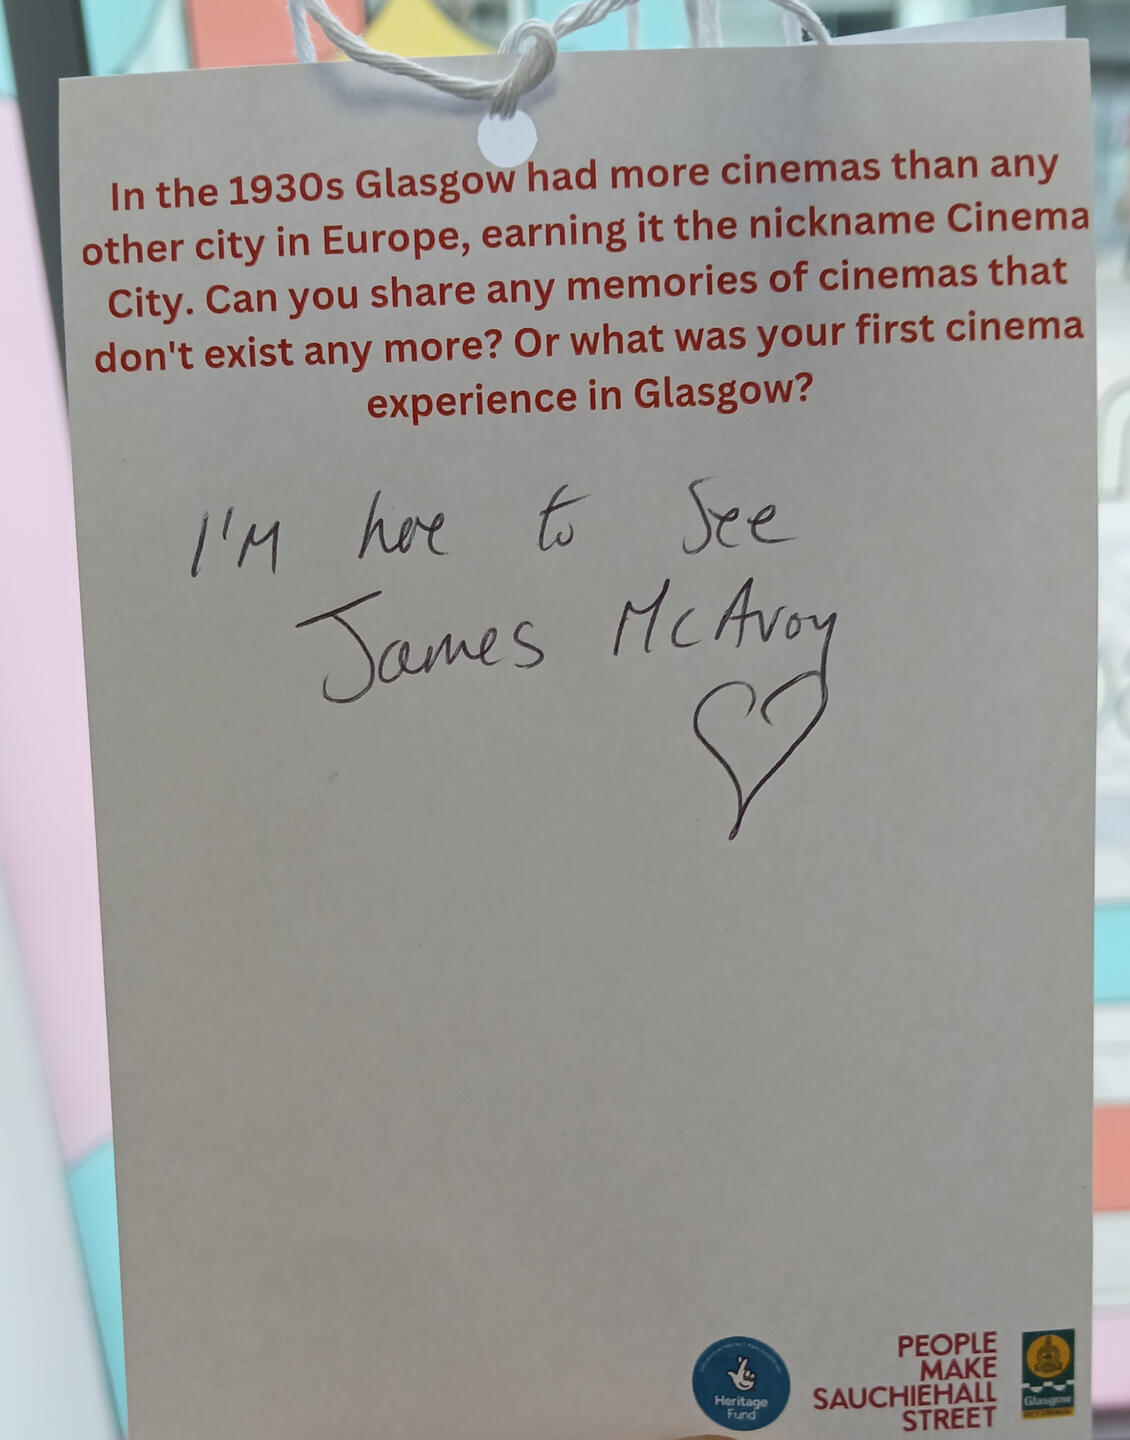 In the 1930s Glasgow had more cinemas than any
other city in Europe, earning it the nickname Cinema
City. Can you share any memories of cinemas that
don't exist any more? Or what was your first cinema
experience in Glasgow?
I'M here to See
James McAvoy
Heritage
Fund
PEOPLE
MAKE
SAUCHIEHALL
STREET
Glasgow